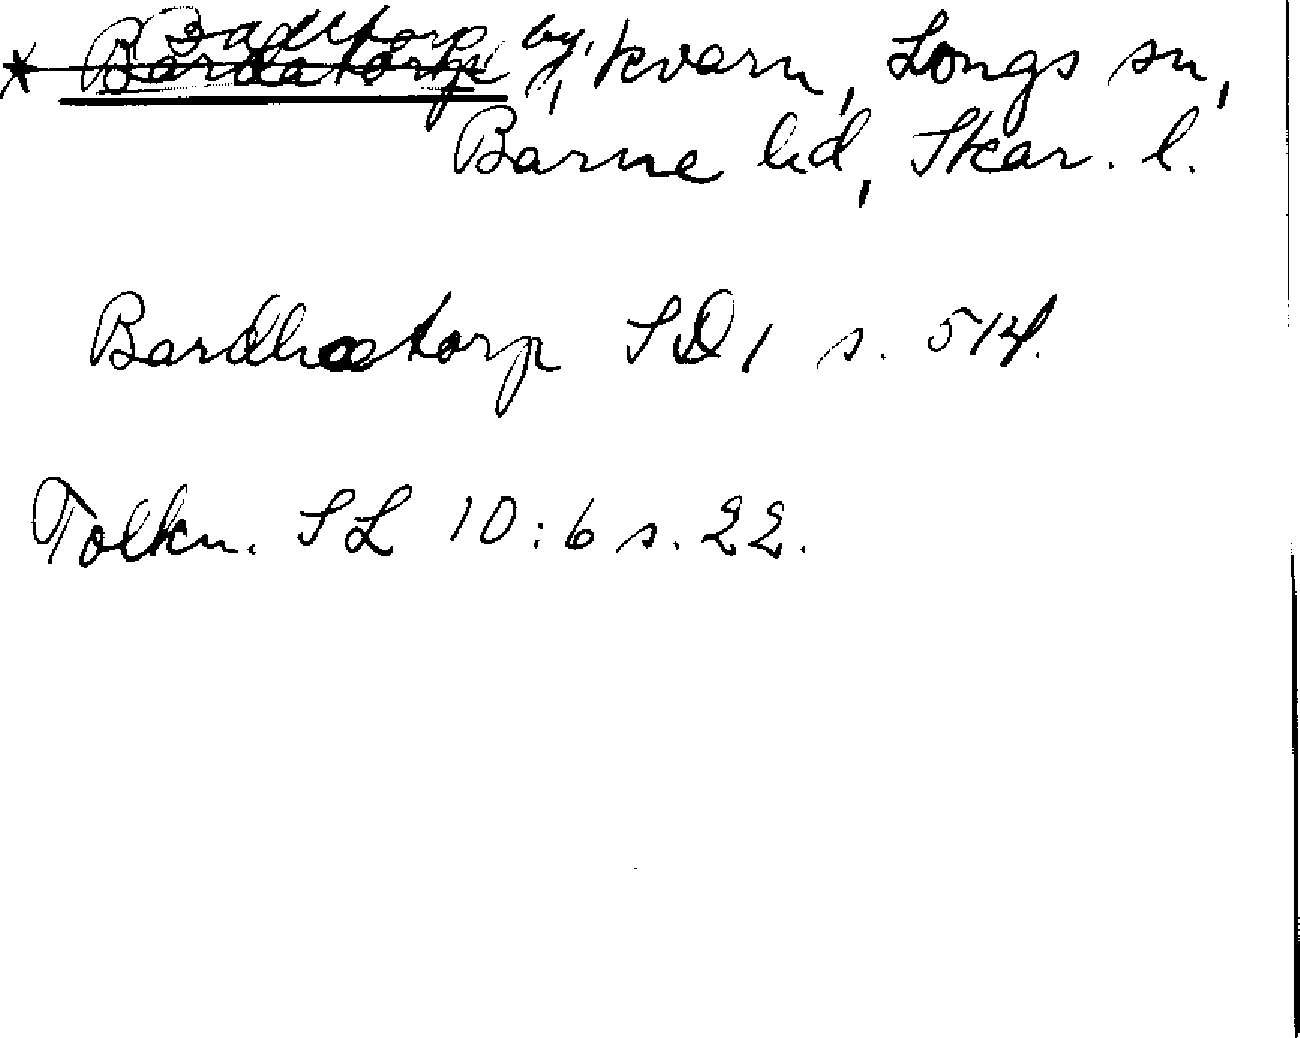 * Bardatorp Badetorp by, kvarn, Longs sn,
Barne hd, Skar. l.
Bardhatorp SD 1 s. 514.
Tolkn. SL 10:6 s. 22.